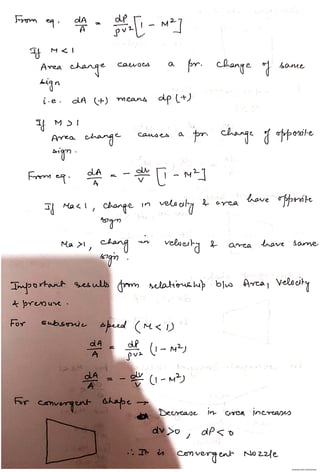 From eq. dA/A = dP/ρV² [1 - M²]
If M < 1
Area change causes a pr. change of same
sign
i.e. dA (+) means dp (+)
If M > 1
Area change causes a pr. change of opposite
sign.
From eq. dA/A = - dV/V [1 - M²]
If Ma < 1, change in velocity & area have opposite
sign
Ma > 1, chang in velocity & area have same
sign.
Important results from relationship b/w Area, Velocity
& pressure.
For subsonic speed (M < 1)
dA/A = dP/ρV² (1 - M²)
dA/A = - dV/V (1 - M²)
For convergent shape →
Decrease in area increases
dv>0, dP<0
∴ It is convergent Nozzle